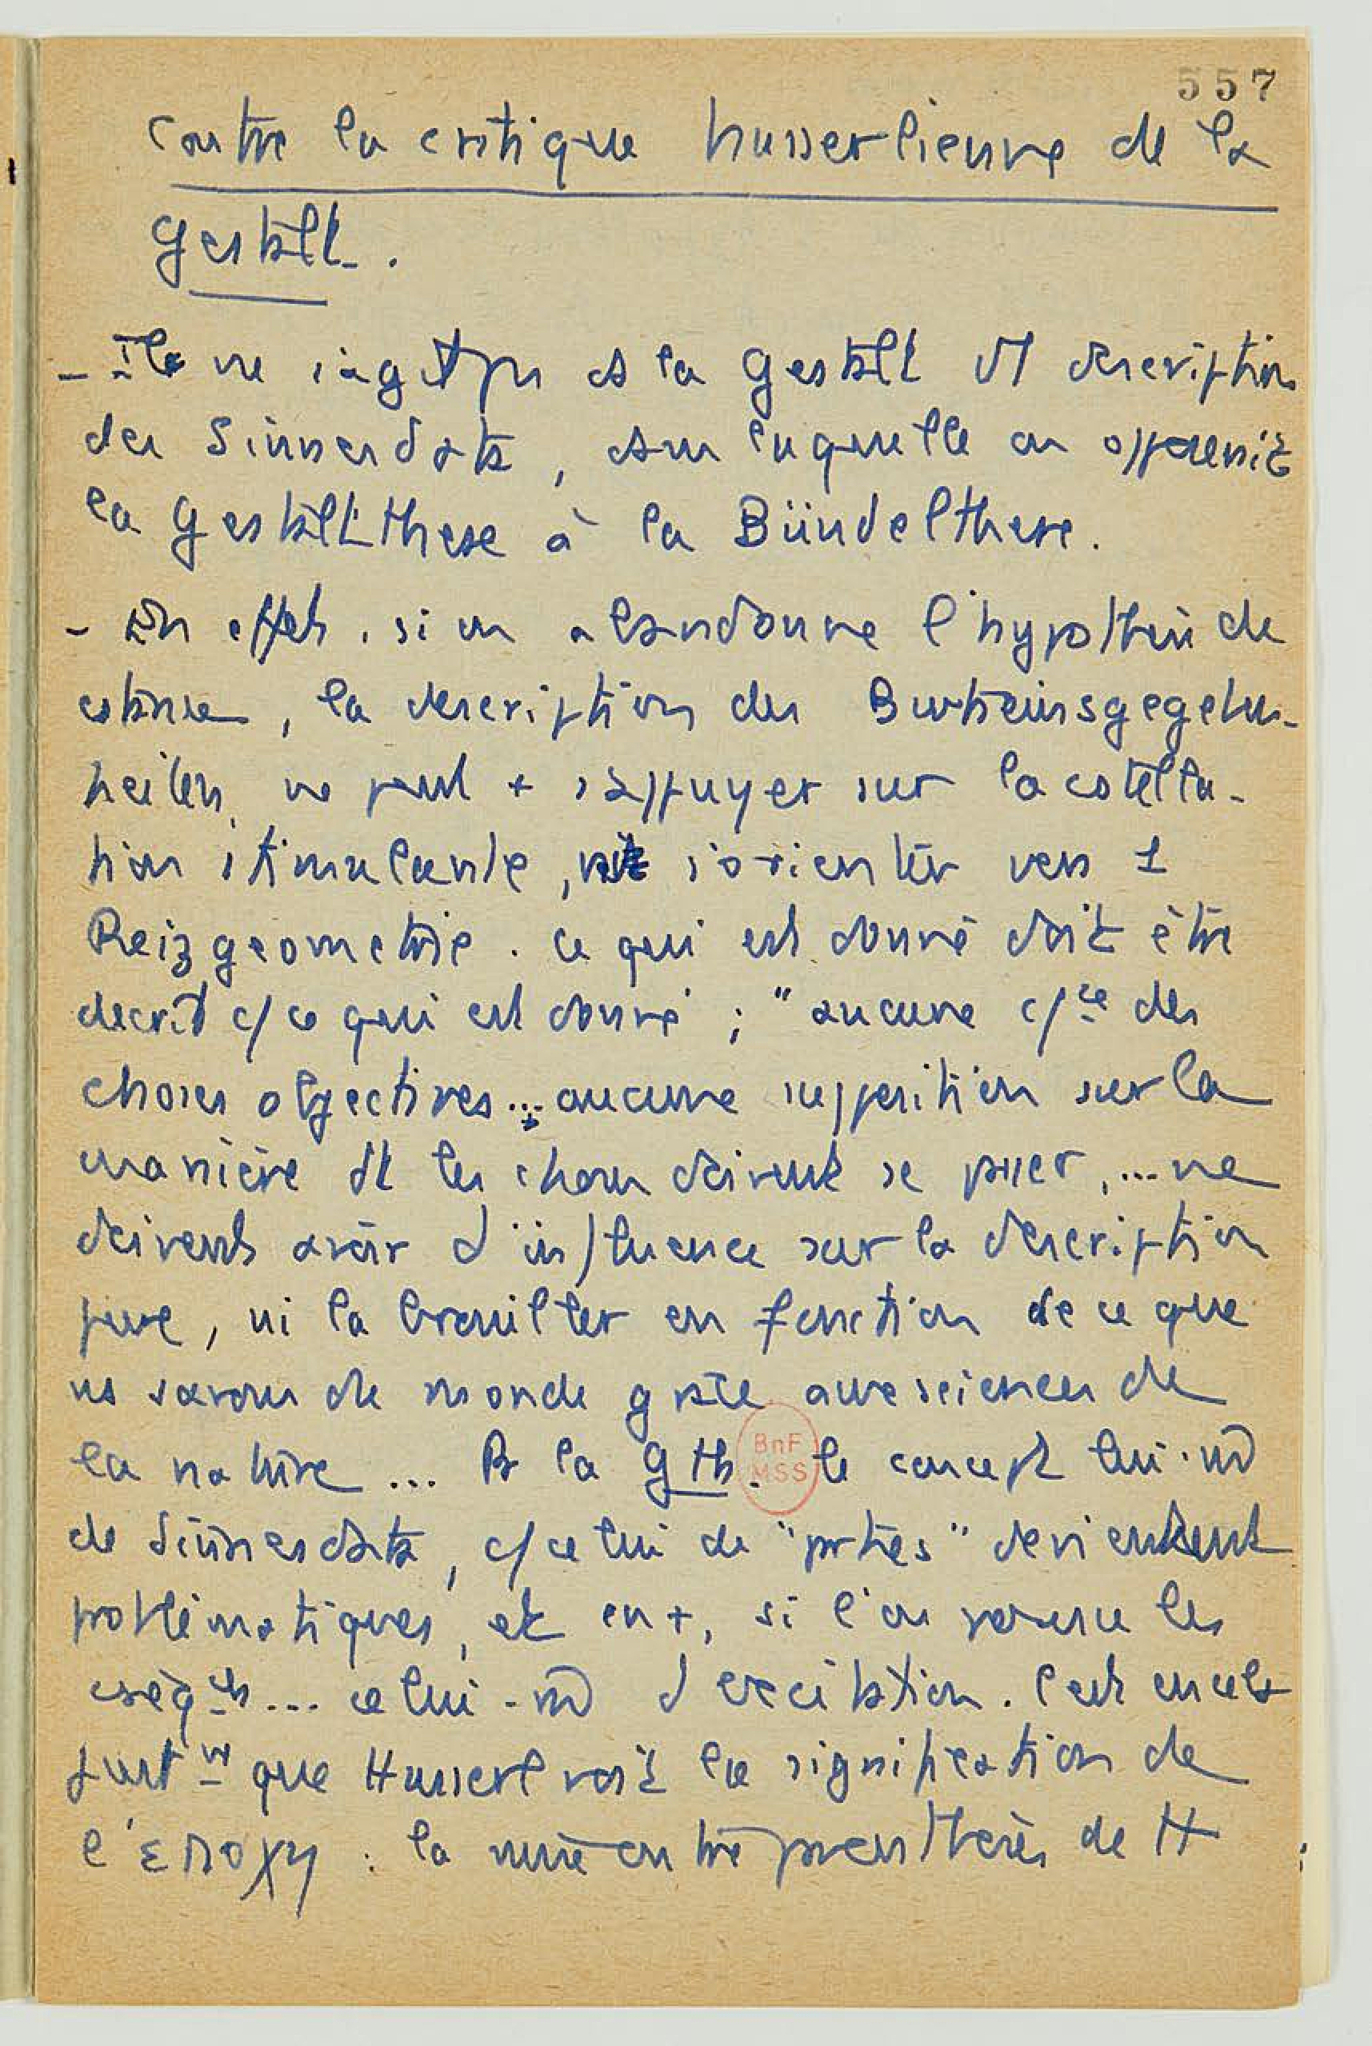 557
Contre la critique husserlienne de la
Gestalt.
- Il ne s'agit pas ds la Gestalt d'1 description
des Sinnesdata, dans laquelle on opposerait
la Gestaltthese à la Bündelthese.
- En effet, si on abandonne l'hypothèse de
cstance, la description des Bewusstseinsgegeben-
heiten, ne peut + s'appuyer sur la cstella-
tion stimulante, s'orienter vers 1
Reizgeometrie. Ce qui est donné doit être
décrit c/ ce qui est donné ; "aucune c/ce des
choses objectives... aucune supposition sur la
manière dt les choses doivent se passer, ... ne
doivent avoir d'influence sur la description
pure, ni la brouiller en fonction de ce que
ns savons du monde grâce aux sciences de
la nature ... Pr la G th. le concept lui-m̂
de Sinnesdata, c/ celui de "parties" deviennent
problématiques, et en +, si l'on pousse les
cséqces ... celui-m̂ d'excitation. C'est en cela
justt que Husserl voit la signification de
l'εποχη : la mise entre parenthèses de H